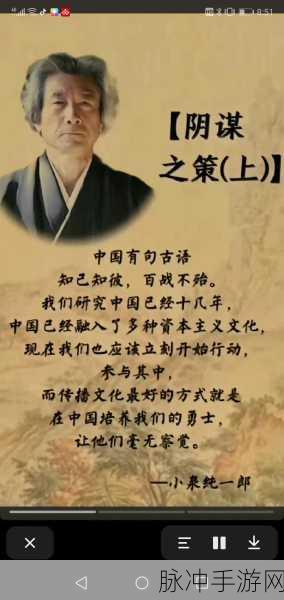 8:51
【阴谋
之策(上)】
中国有句古语
知己知彼，百战不殆。
我们研究中国已经十几年，
中国已经融入了多种资本主义文化，
现在我们也应该立刻开始行动，
参与其中，
而传播文化最好的方式就是
在中国培养我们的勇士，
让他们毫无察觉。
—小泉纯一郎
脉冲手游网